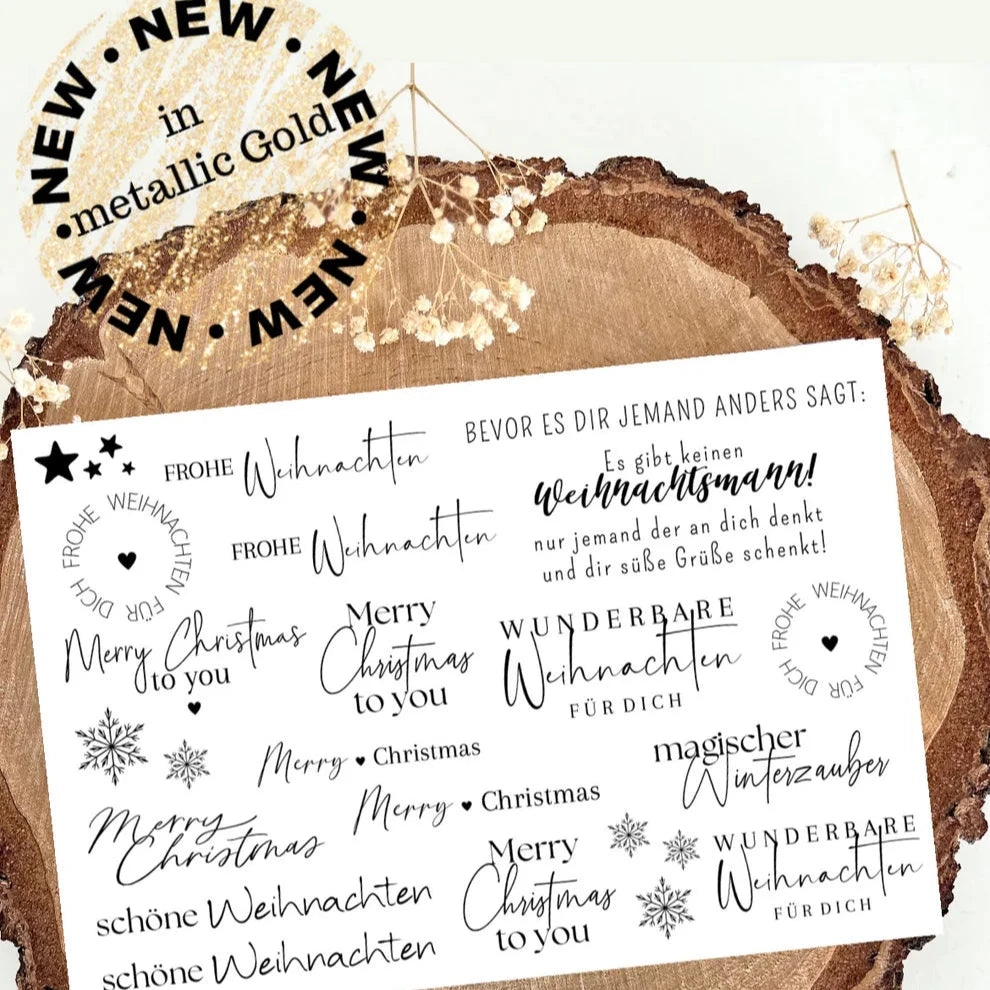 NEW • NEW • NEW • NEW • NEW • NEW • NEW •
in
metallic Gold
BEVOR ES DIR JEMAND ANDERS SAGT:
Es gibt keinen
Weihnachtsmann!
nur jemand der an dich denkt
und dir süße Grüße schenkt!
FROHE Weihnachten
FROHE WEIHNACHTEN FÜR DICH
FROHE Weihnachten
Merry Christmas
to you
Merry
Christmas
to you
WUNDERBARE
Weihnachten
FÜR DICH
FROHE WEIHNACHTEN FÜR DICH
Merry Christmas
magischer
Winterzauber
Merry Christmas
Merry
Christmas
Merry
Christmas
to you
WUNDERBARE
Weihnachten
FÜR DICH
schöne Weihnachten
schöne Weihnachten